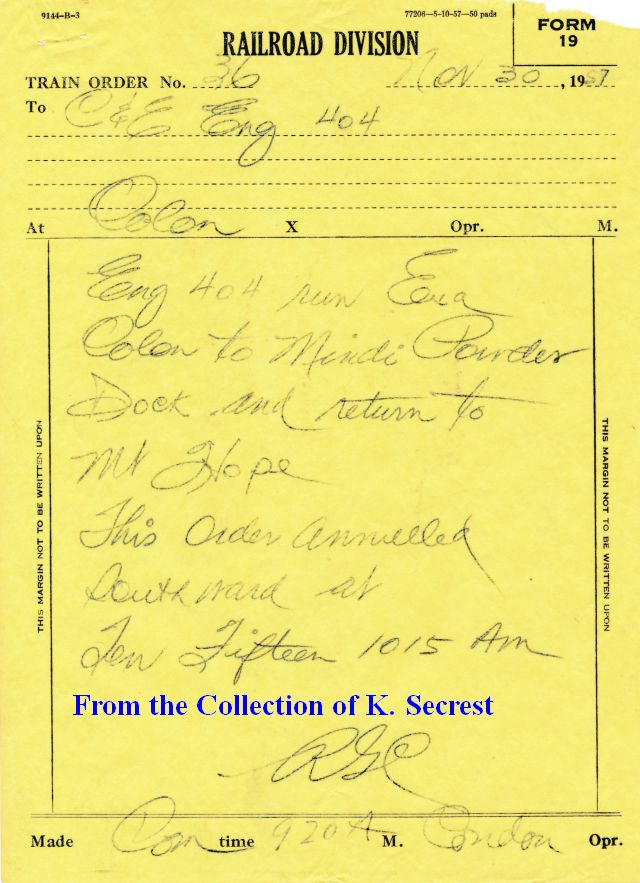 9144-B-3
77206—5-10-57—50 pads
FORM
19
RAILROAD DIVISION
TRAIN ORDER No. 36 Nov 30, 1967
To C&E Eng 404
At Colon X Opr. M.
Eng 404 run Exa
Colon to Mindi Powder
Dock and return to
Mt Hope
This Order annulled
Southward at
Ten Fifteen 1015 Am
From the Collection of K. Secrest
RGC
Made Com time 920 A M. Condon Opr.
THIS MARGIN NOT TO BE WRITTEN UPON
THIS MARGIN NOT TO BE WRITTEN UPON